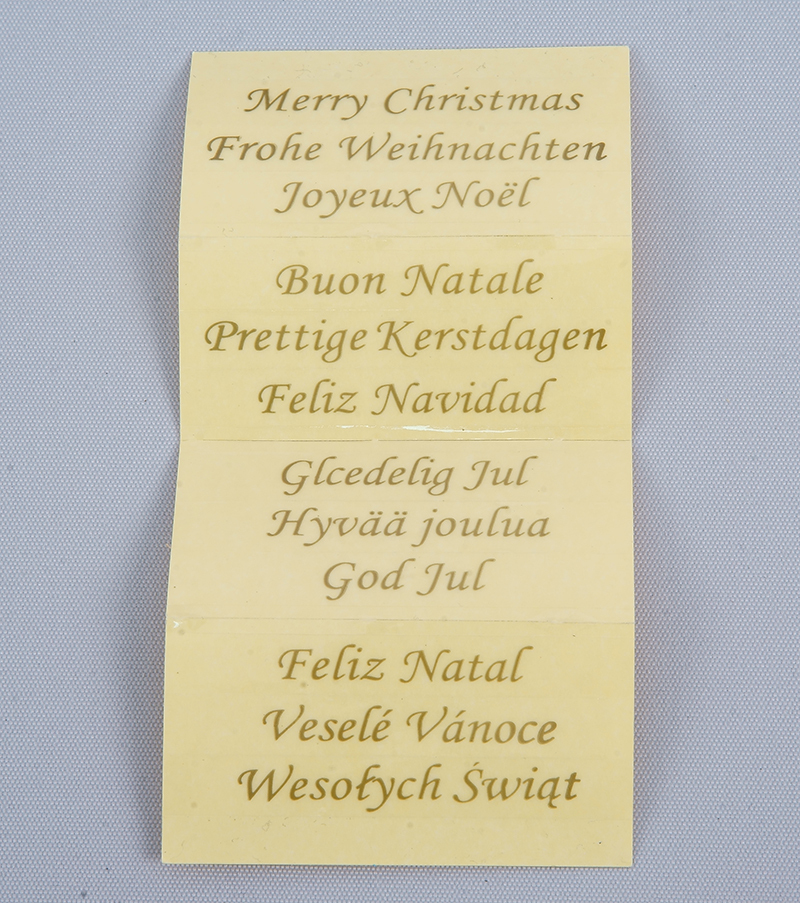 Merry Christmas
Frohe Weihnachten
Joyeux Noël
Buon Natale
Prettige Kerstdagen
Feliz Navidad
Glcedelig Jul
Hyvää joulua
God Jul
Feliz Natal
Veselé Vánoce
Wesołych Świąt